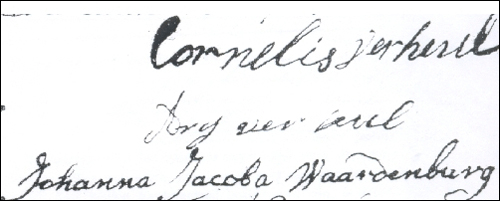 Cornelis verheul
Ary ver eul
Johanna Jacoba Waardenburg